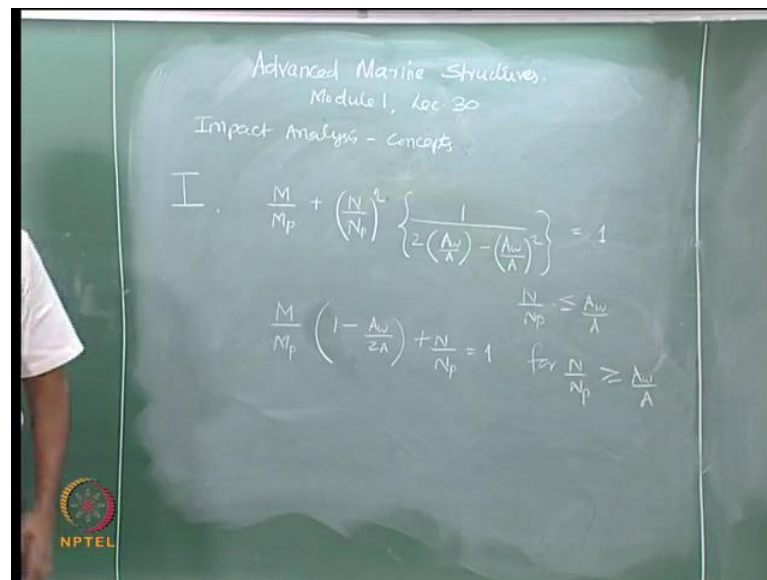 Advanced Marine Structures.
Module 1, Lec. 30
Impact Analysis - Concepts.
I. M/Mp + (N/Np)² { 1 / (2(Aw/A) - (Aw/A)²) } = 1
N/Np ≤ Aw/A
M/Mp (1 - Aw/2A) + N/Np = 1 for N/Np ≥ Aw/A
NPTEL